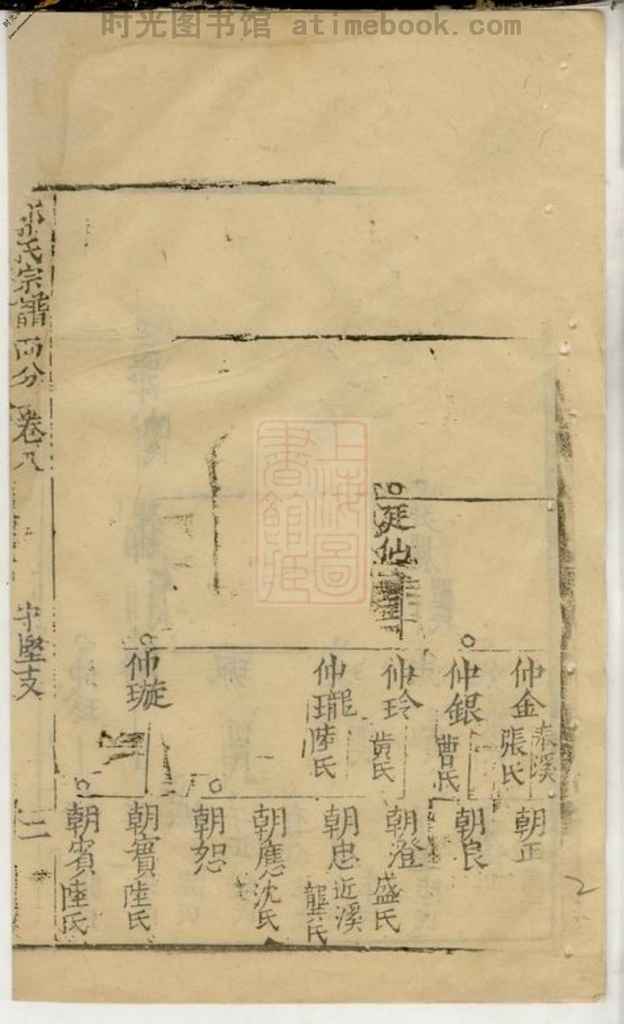 时光图书馆 atimebook.com
仲金 春溪 張氏
仲銀 曹氏
仲玲 黄氏
仲瓏 陸氏
仲璇
朝正
朝良
朝澄 盛氏
朝忠 近溪 龔氏
朝應 沈氏
朝恕
朝實 陸氏
朝賓 陸氏
氏宗譜 卷八
守堅支
二
上海圖書館藏
2